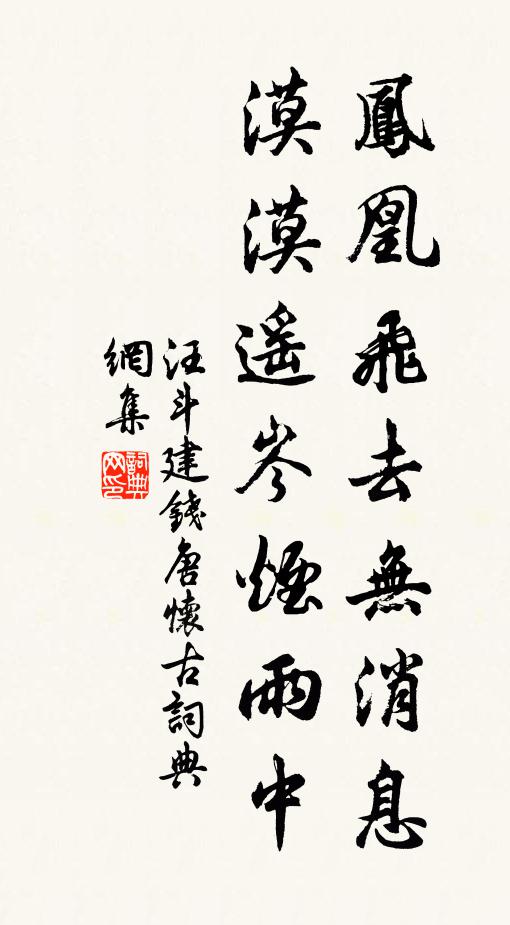 鳳凰飛去無消息
漠漠遥岑煙雨中
汪斗建錢唐懷古詞典
網集
詞典網印